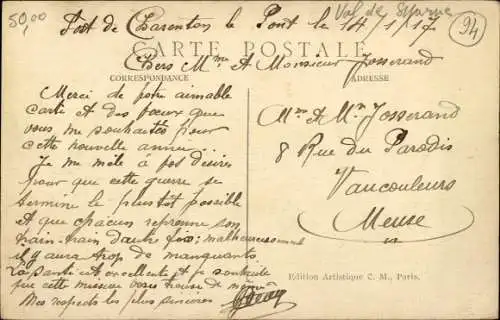 50,00
Val de Marne
94
Fort de Charenton le Pont le 14/1/17
CARTE POSTALE
Chers Mme et Monsieur Josserand
CORRESPONDANCE
ADRESSE
Merci de votre aimable
carte et des vœux que
vous me souhaitez pour
cette nouvelle année...
Je me mêle à vos désirs
pour que cette guerre se
termine le plus tôt possible
et que chacun reprenne son
train-train d'autre fois; malheureusement
il y aura trop de manquants.
La santé est excellente et je souhaite
que cette mission vous trouve de même
Mes respects les plus sincères
Mr et Mme Josserand
8 Rue du Paradis
Vaucouleurs
Meuse
Edition Artistique C. M., Paris.